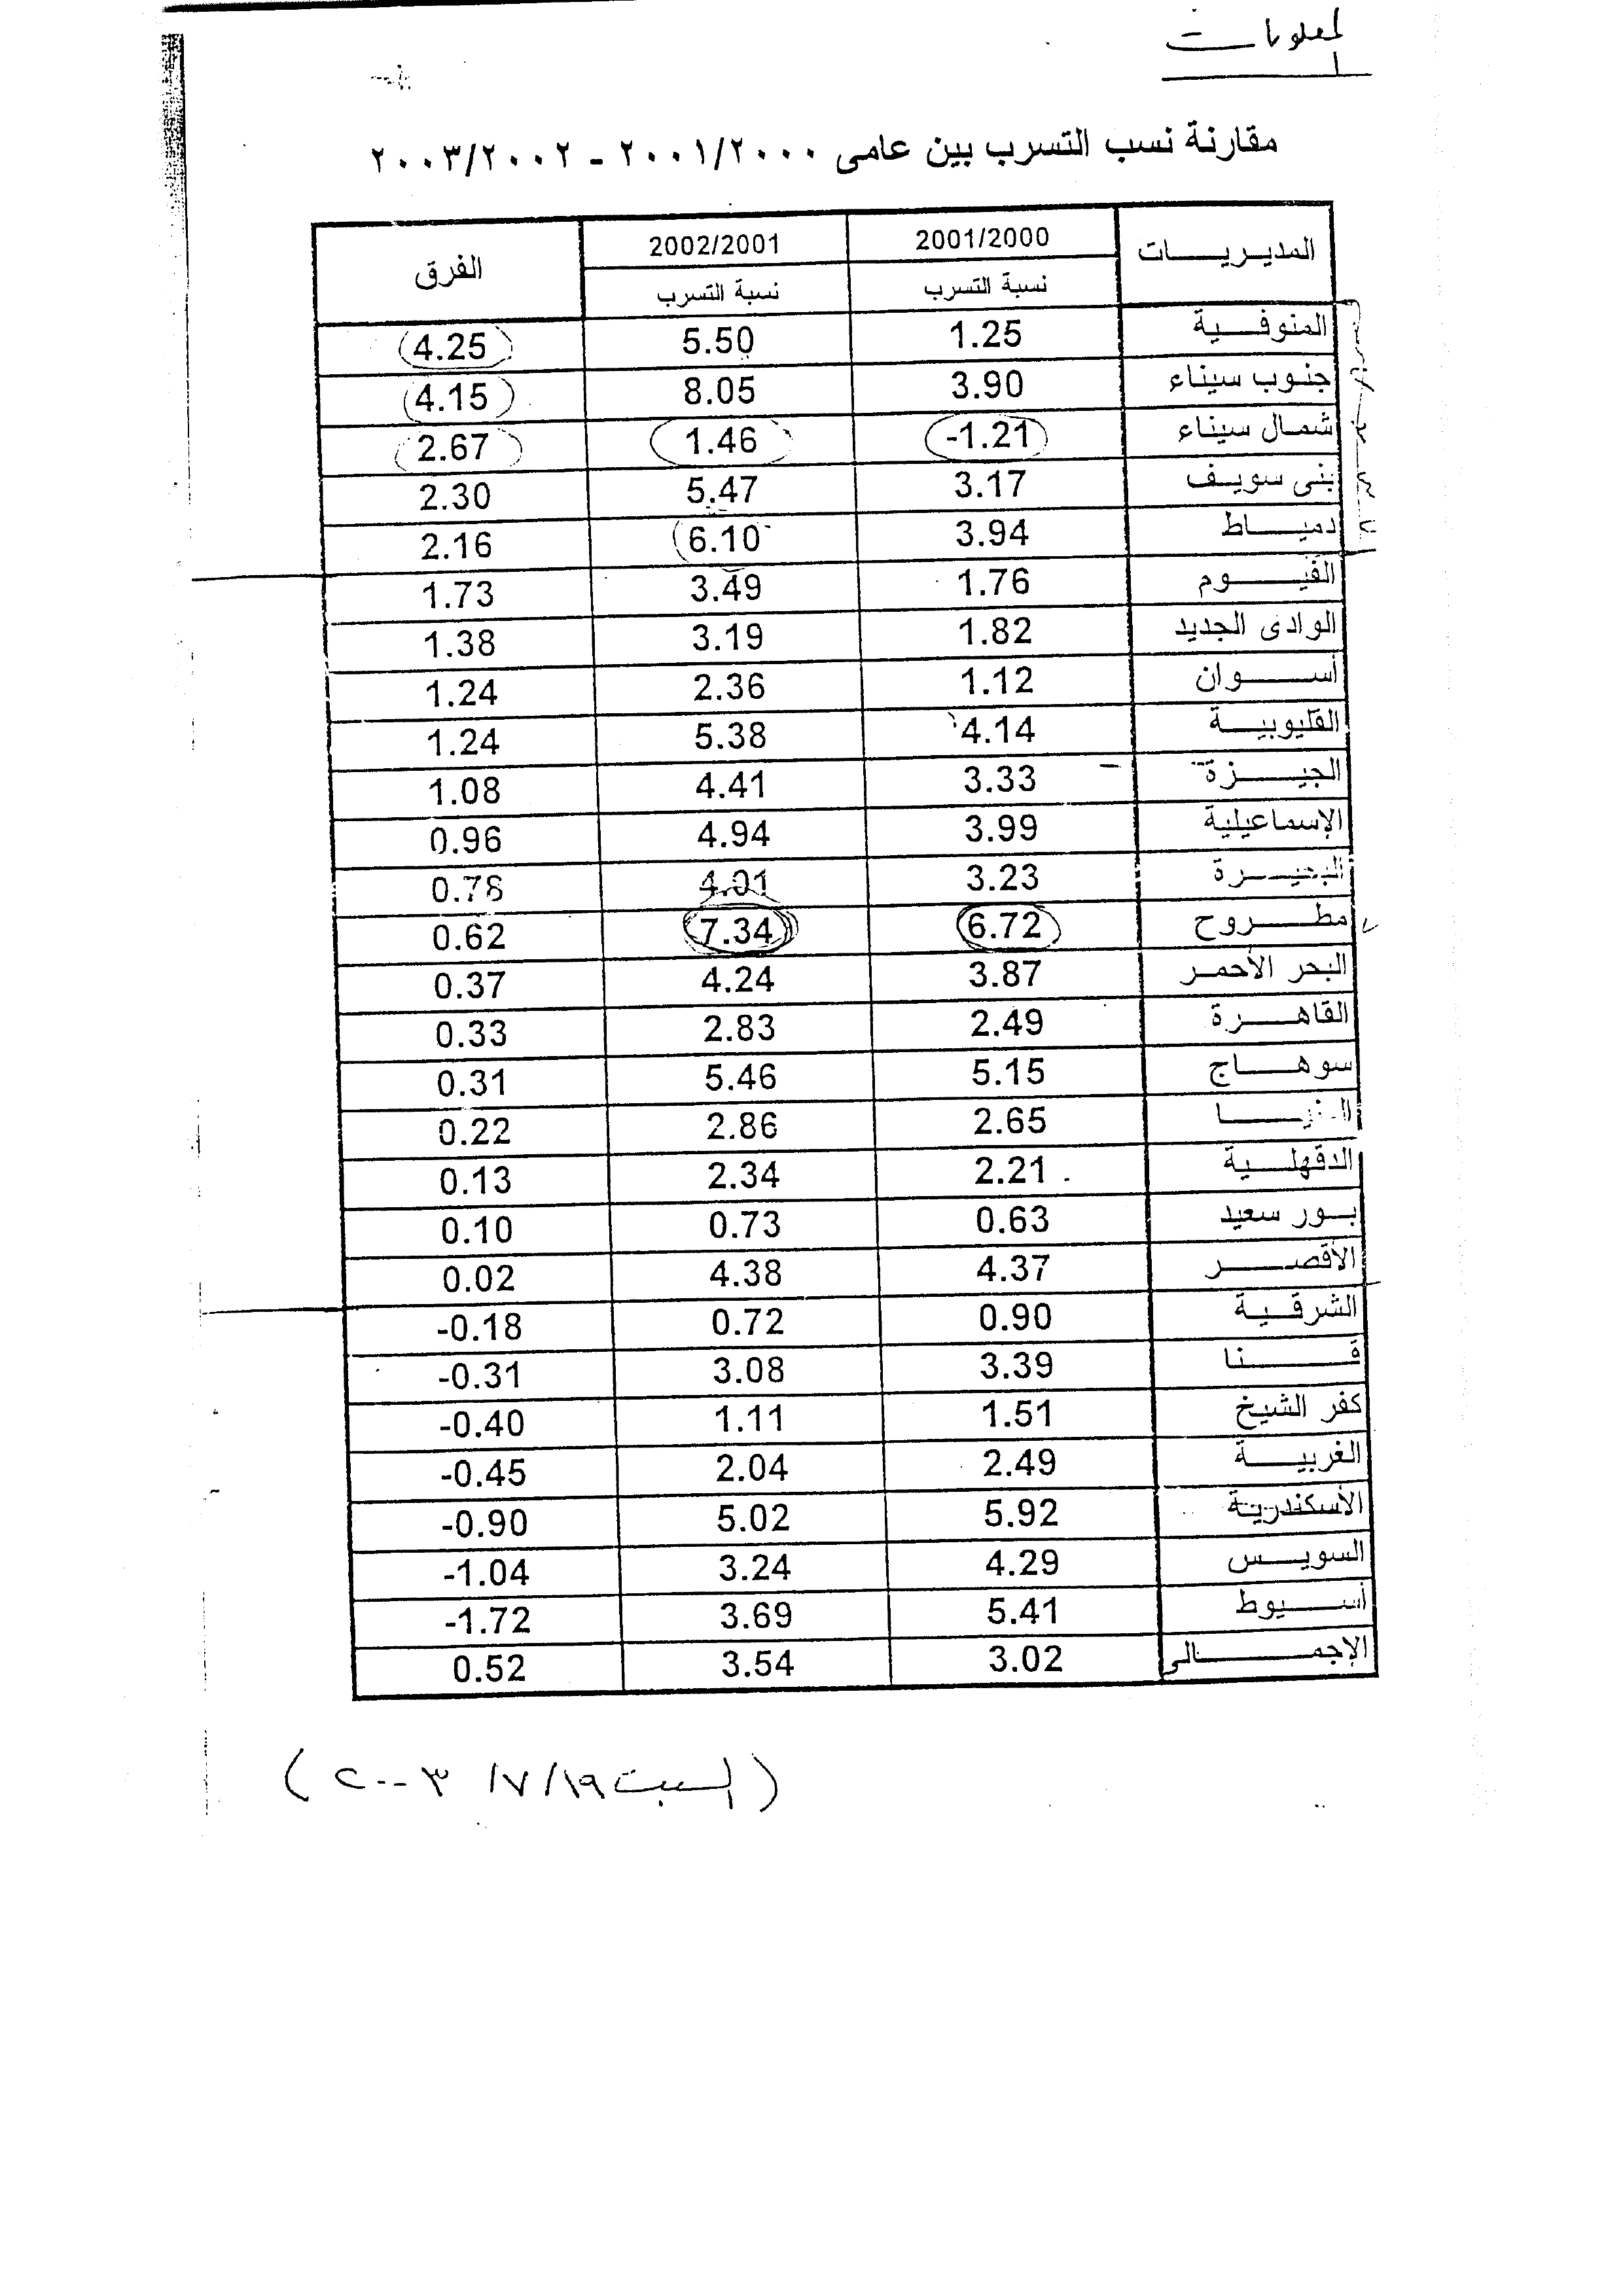 لمعلومات
مقارنة نسب التسرب بين عامى ٢٠٠١/٢٠٠٠ - ٢٠٠٣/٢٠٠٢
المديريات 2001/2000 2002/2001 الفرق
نسبة التسرب نسبة التسرب
المنوفية 1.25 5.50 4.25
جنوب سيناء 3.90 8.05 4.15
شمال سيناء -1.21 1.46 2.67
بنى سويف 3.17 5.47 2.30
دمياط 3.94 6.10 2.16
الفيوم 1.76 3.49 1.73
الوادى الجديد 1.82 3.19 1.38
أسوان 1.12 2.36 1.24
القليوبية 4.14 5.38 1.24
الجيزة 3.33 4.41 1.08
الإسماعيلية 3.99 4.94 0.96
البحيرة 3.23 4.01 0.78
مطروح 6.72 7.34 0.62
البحر الأحمر 3.87 4.24 0.37
القاهرة 2.49 2.83 0.33
سوهاج 5.15 5.46 0.31
المنيا 2.65 2.86 0.22
الدقهلية 2.21 2.34 0.13
بور سعيد 0.63 0.73 0.10
الأقصر 4.37 4.38 0.02
الشرقية 0.90 0.72 -0.18
قنا 3.39 3.08 -0.31
كفر الشيخ 1.51 1.11 -0.40
الغربية 2.49 2.04 -0.45
الأسكندرية 5.92 5.02 -0.90
السويس 4.29 3.24 -1.04
أسيوط 5.41 3.69 -1.72
الإجمالى 3.02 3.54 0.52
(السبت ١٩/٧/٢٠٠٣)